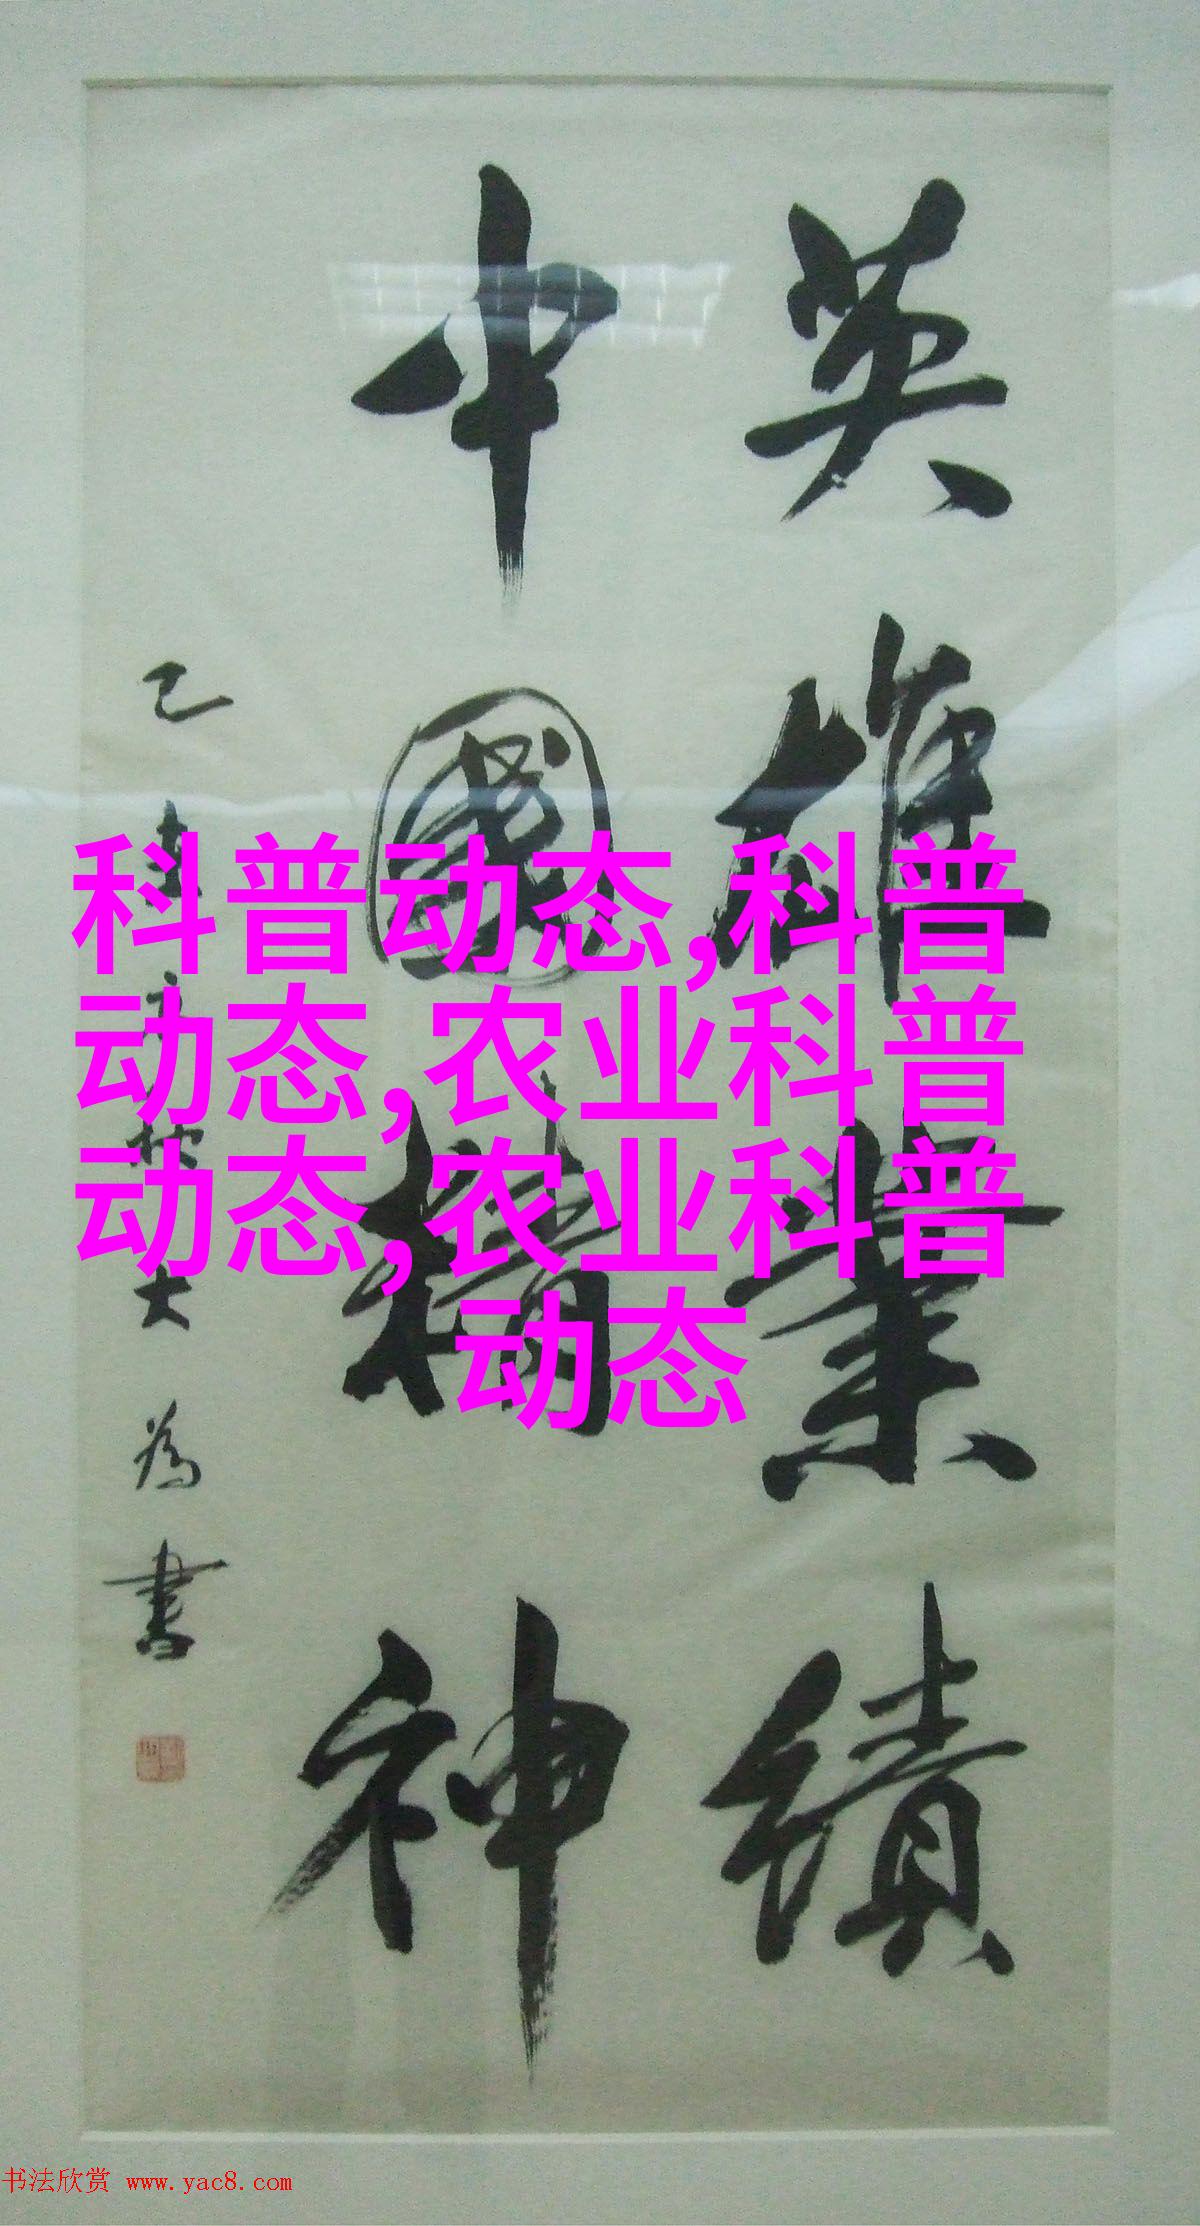 英雄業績
中國精神
為書
科普动态,科普
动态,农业科普
动态,农业科普
动态
书法欣赏 www.yac8.com